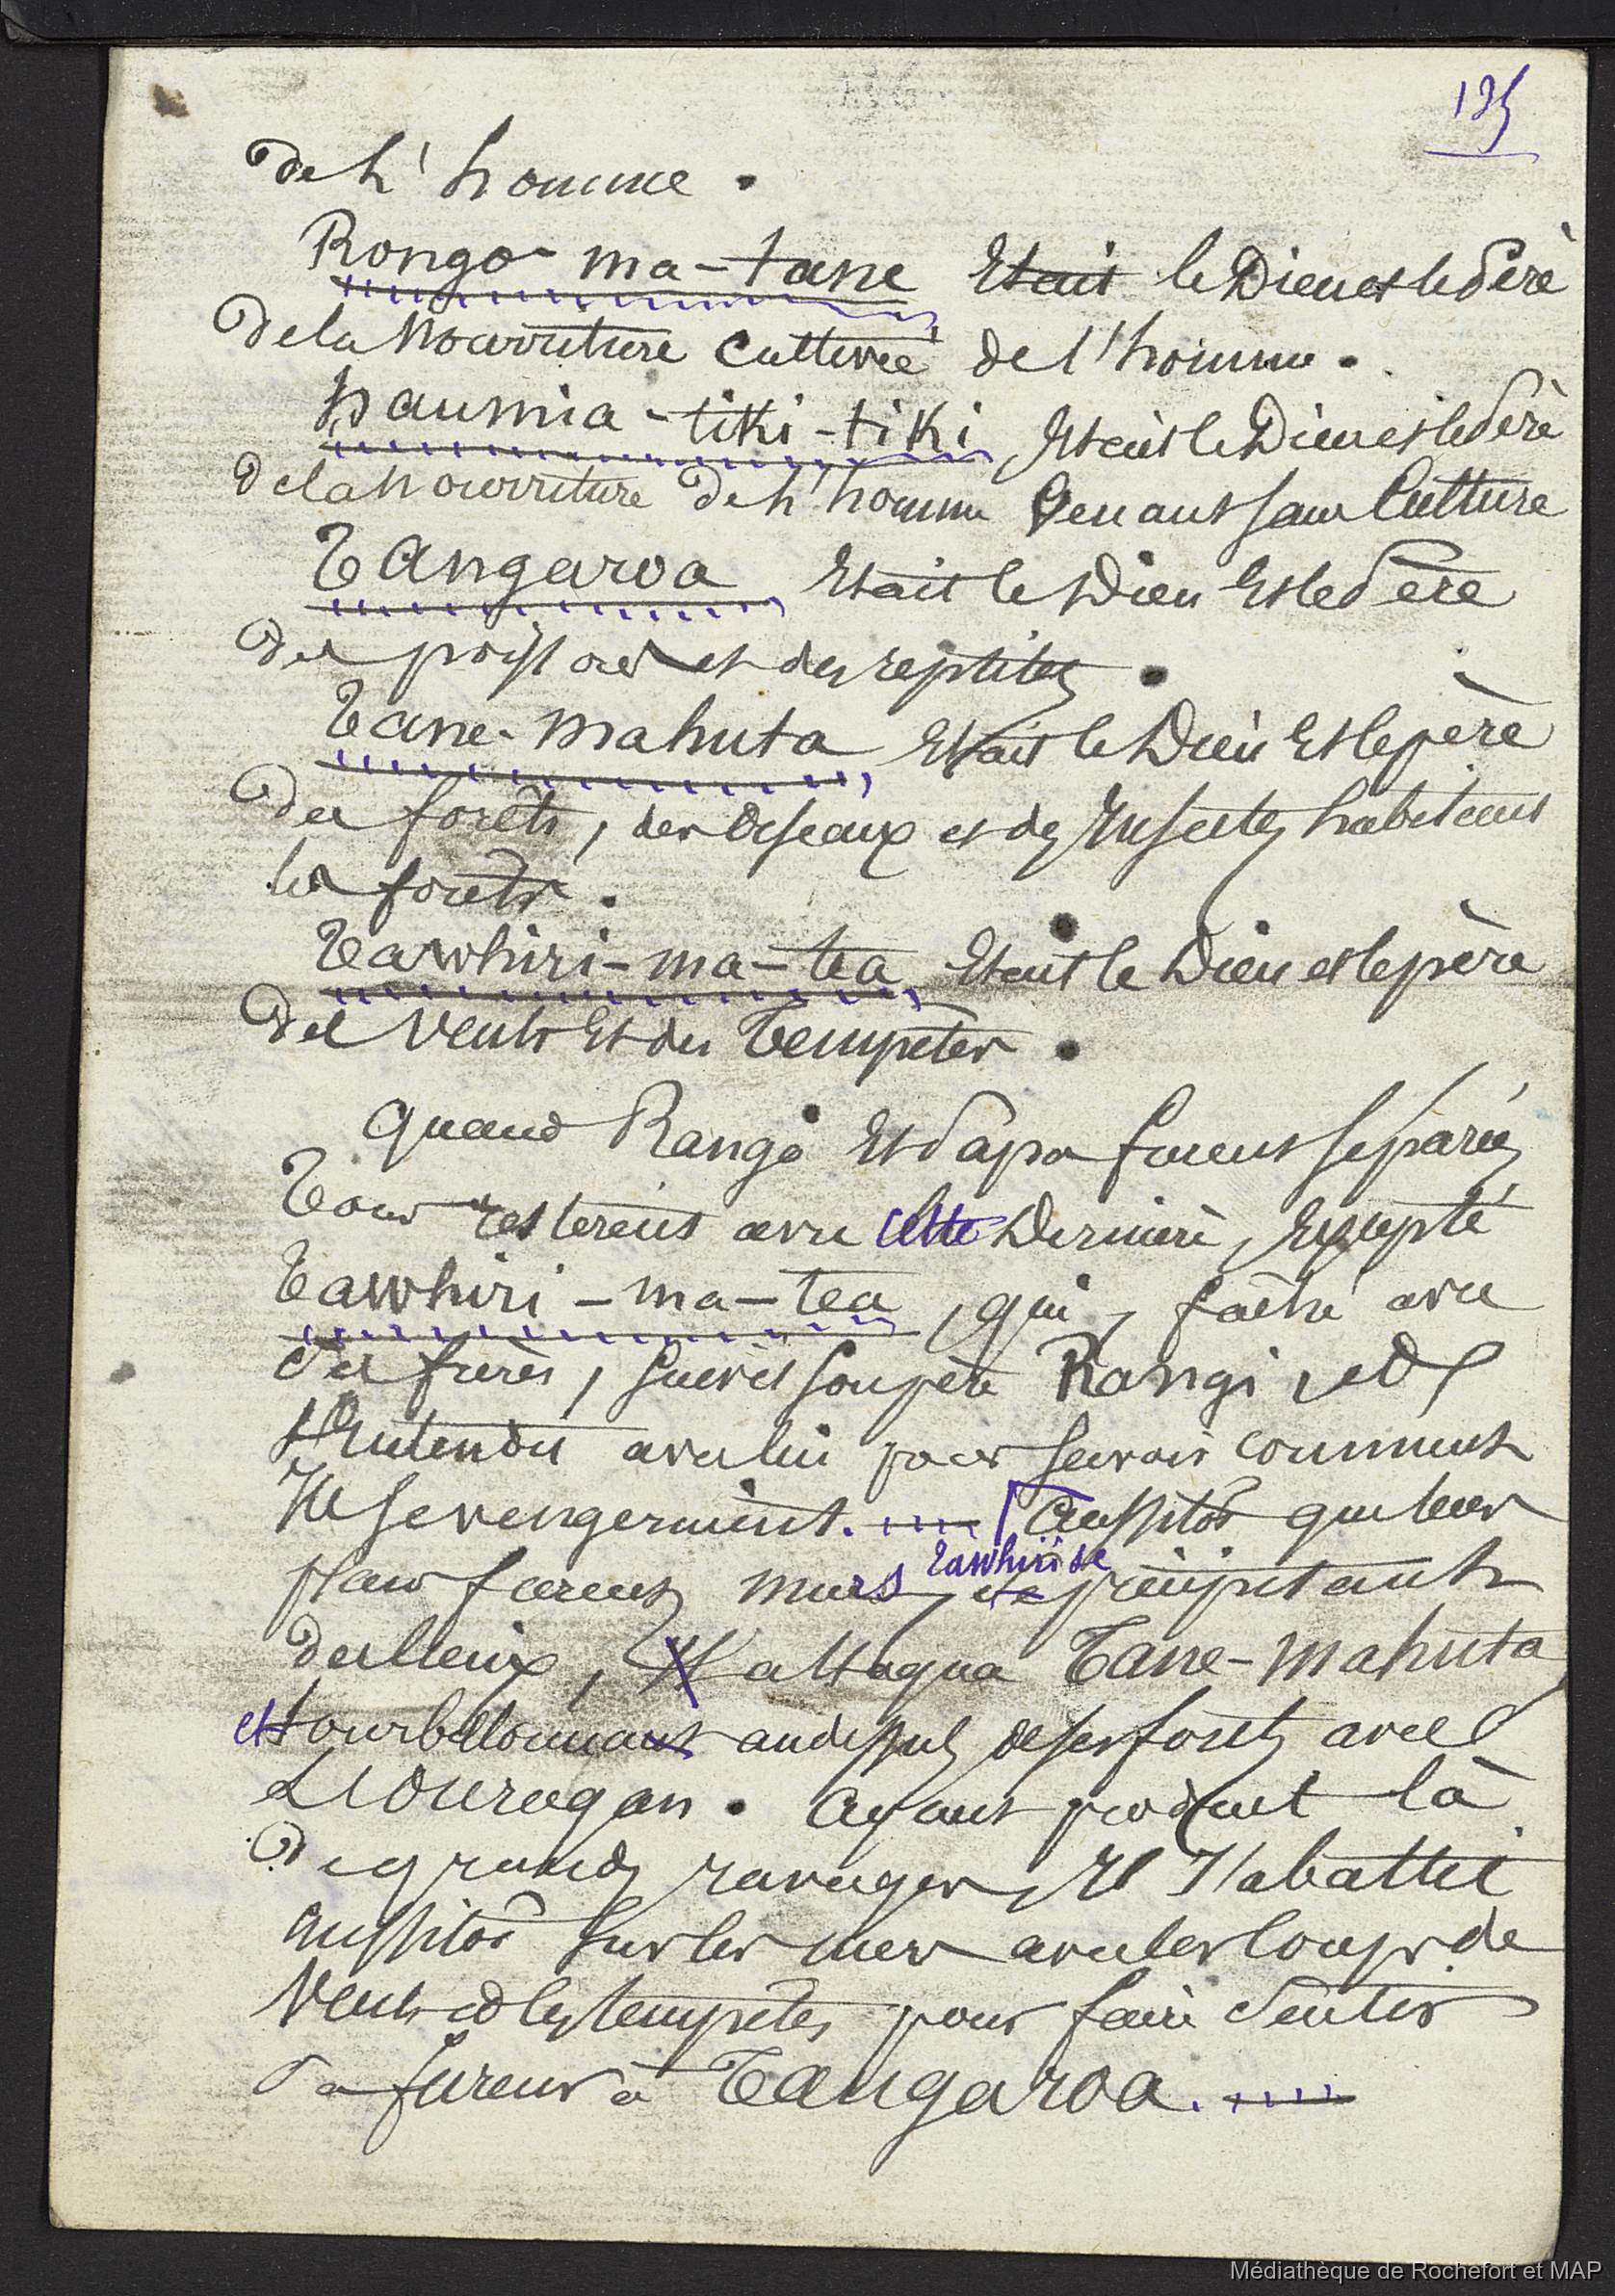 135
de l'homme.
Rongo-ma-tane Etait le Dieu et le Père
de la Nourriture Cultivée de l'homme.
Haumia-tiki-tiki, Etait le Dieu et le Père
de la Nourriture de l'homme Venant sans Culture
Tangaroa Etait le Dieu Et le Père
des poissons et des reptiles.
Tane-Mahuta, Etait le Dieu Et le père
des forêts, des Oiseaux et des Insectes habitant
les forêts.
Tawhiri-ma-tea, Etait le Dieu et le père
des Vents Et des Tempêtes.
Quand Rangi Et Papa furent séparés,
Tous restèrent avec cette Dernière, Excepté
Tawhiri-ma-tea, qui, fâché avec
ses frères, suivit son père Rangi, et
s'Entendit avec lui pour savoir comment
Ils se vengeraient. Aussitôt que leurs
plans furent murs, Tawhiri se précipitant
des Cieux, attaqua Tane-Mahuta,
et tourbillonnant au dessus de ses forêts avec
L'Ouragan. Ayant produit là
de grands ravages, Il s'abattit
Aussitôt sur les mers avec les Coups de
Vents et les tempêtes pour faire Sentir
Sa fureur à Tangaroa.
Médiathèque de Rochefort et MAP